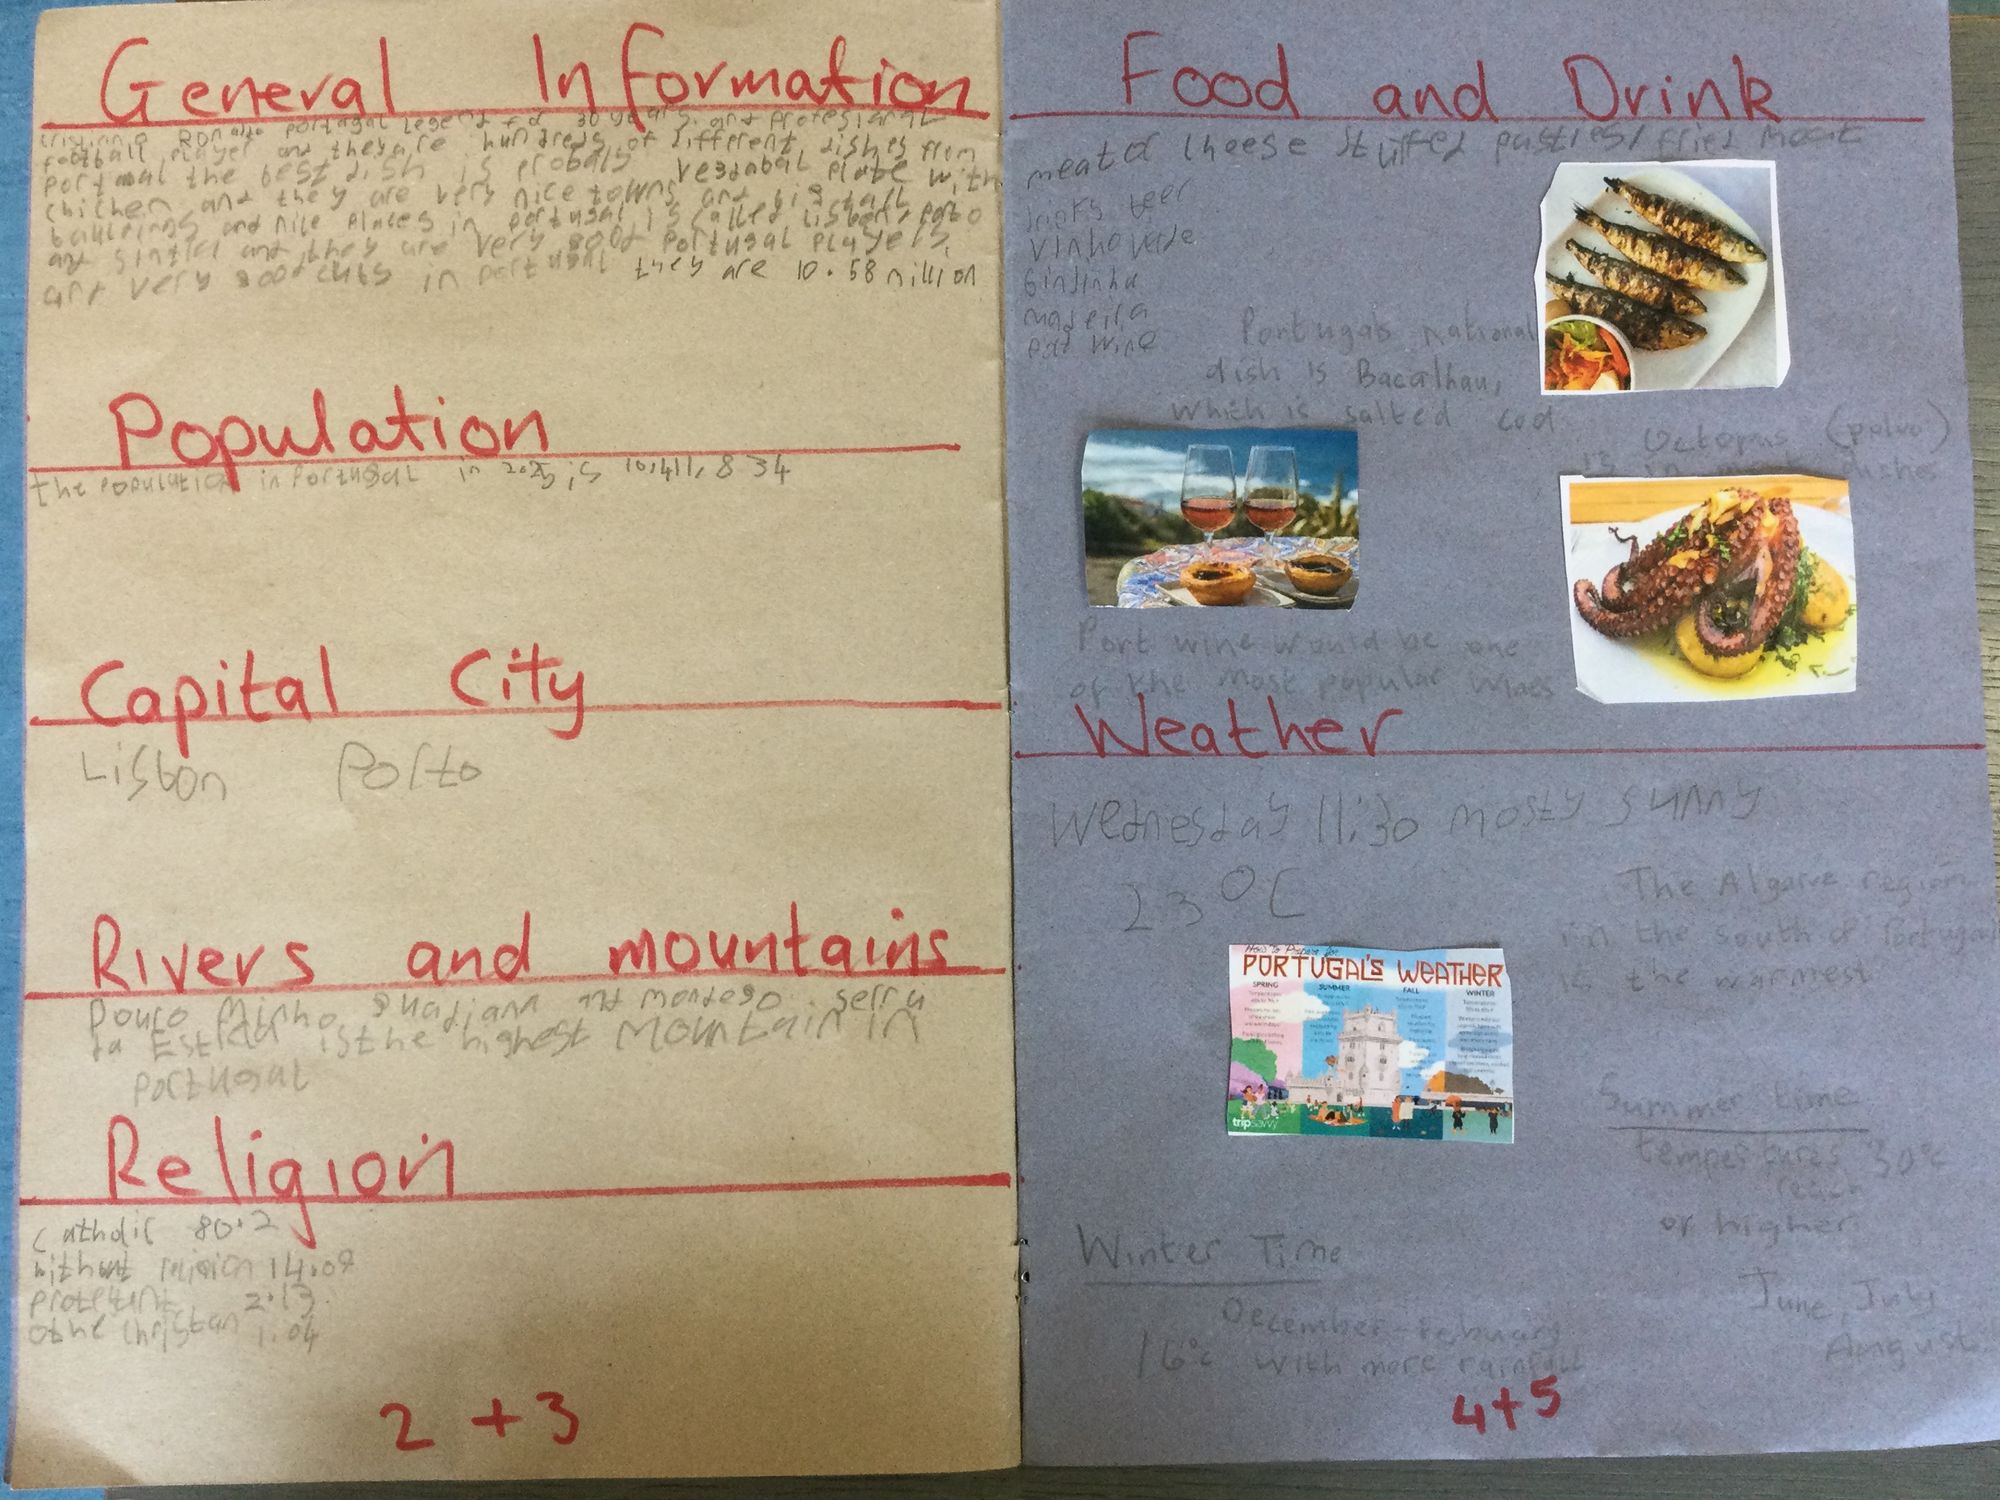 General Information
Ronaldo Portugal Legend 30 years and
football player and they are hundreds of different dishes from
portugal the best dish is probaly plate with
chichen and they are very nice towns and big tall
and nice places in portugal is called Lisben, Porto
and and they are very good Portugal players,
and very good in portugal they are 10.58 million
Population
the population in Portugal in 2025 is 10,411,834
Capital City
Lisbon Porto
Rivers and mountains
Douro Minho guadiana and mondego. Serra
da Estrela is the highest Mountain in
portugal
Religion
Catholic 80.2
without 14.09
2.13
othe Christan 1.04
2 + 3
Food and Drink
meat or cheese stuffed pasties/ fried meat
drinks beer
Vinho verde
Ginjinha
madeira
port wine
Portugals national
dish is Bacalhau,
which is salted cod
Octopus (polvo)
is in most dishes
Port wine would be one
of the most popular wines
Weather
Wednesday 11:30 mosty sunny
23°C
The Algarve region
in the South of Portugal
is the warmest
How to Prepare for
PORTUGAL'S WEATHER
SPRING SUMMER FALL WINTER
tripsavvy
Summer time
temperatures 30°c
reach
or higher
June, July
August
Winter Time
December-Febuary
16°c with more rainfall
4+5